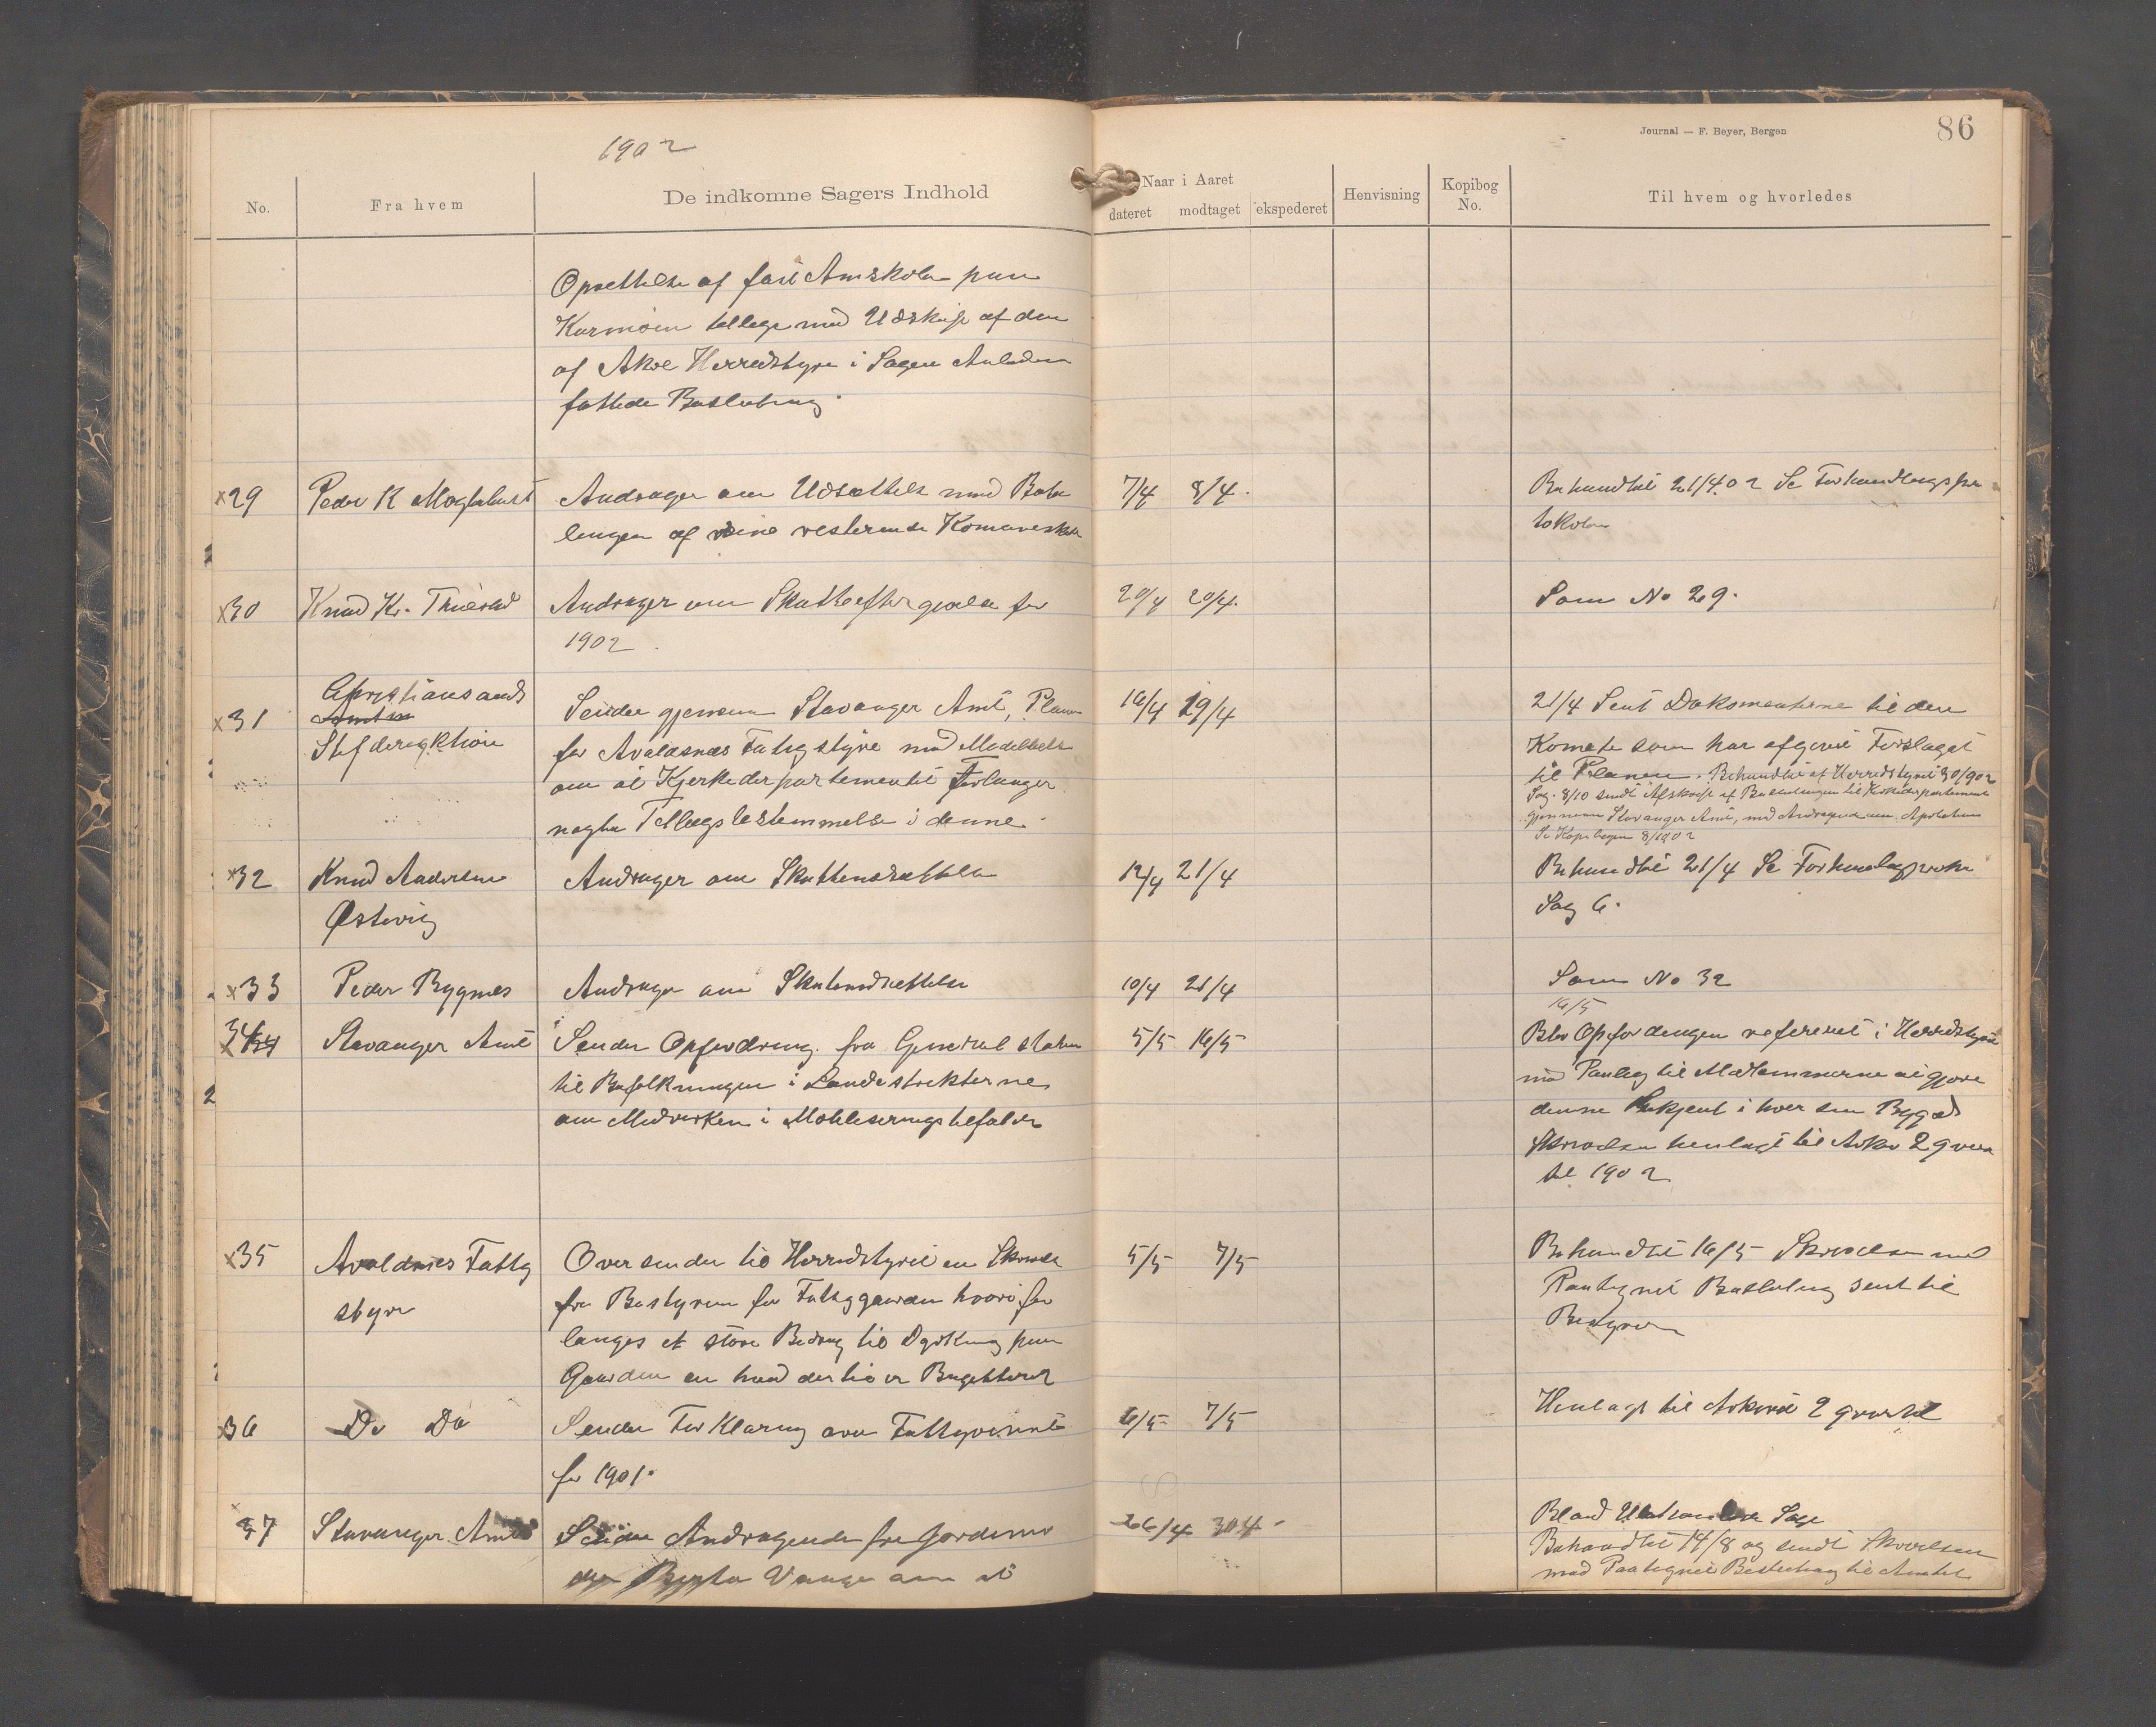 1902
Journal — F. Beyer, Bergen
86
No.
Fra hvem
De indkomne Sagers Indhold
Naar i Aaret
dateret
modtaget
ekspederet
Henvisning
Kopibog
No.
Til hvem og hvorledes
Oprettelse af fast Amtskole paa
Karmøen tillige med Udskrift af den
af Akre Herredstyre i Sagens Anledn
fattede Beslutning
x29
Peder K
Andrager om Udsættelse med Beta
lingen af sine resterende Komuneskat
7/4
8/4.
Behandlet 21/4.02 Se Forhandlingspro
tokolen
x30
Knud Kr.
Andrager om Skatteeftergivelse for
1902
20/4
20/4.
Som No 29.
x31
Christiansands
Stifdirektion
Sender gjennem Stavanger Amt, Planen
for Avaldsnæs Fatigstyre med Meddelels
om at Kjerkedepartementet forlanger
nogle Tillægsbestemmelse i denne.
16/4
19/4
21/4 Sent Dokomenterne til den
Komite som har afgivet Forslaget
til Planen. Behandlet af Herredstyret 30/902
Sag. 8/10 sendt Afskrift af Beslutningen til Kirkedepartement
gjennem Stavanger Amt, med Andragende om
Se Kopibogen 8/1902
x32
Knud Andersen
Østevig
Andrager om Skattensættelse
12/4
21/4
Behandlet 21/4 Se
Sag 6.
x33
Peder Bygnes
Andrager om
10/4
21/4
Som No 32
34
Stavanger Amt
Sender Opfordring fra Generalstaben
til Befolkningen i Landsdistrikterne
om Medvirken i Mobiliseringstilfælde
5/5
16/5
16/5
Blev Opfordringen referert i Herredstyret
med Paalæg til Medlemmerne at gjøre
denne bekjent i hver sin Bygd
Skrivelsen henlagt til Arkiv 2 qvar
tal 1902
x35
Avaldsnes Fattig
styre
Oversender til Herredstyret en Skrivelse
fra Bestyreren for Fattiggaarden hvori for
langes et større Bedrag til Dyrkning paa
Gaarden en hvad dertil er Bugetteret
5/5
7/5
Behandlet 16/5 Skrivelsen med
Paategnet Beslutning sent til
Bestyreren
x36
Do Do
Sender Forklaring over Fattigvesenet
for 1901.
6/5
7/5
Henlagt til Arkivet 2 qvartal
x
37
Stavanger Amt
Sender Andragende fra Jordemo
der Vange om at
26/4
30 4
Bland Sage
Behandlet 14/8 og sendt Skrivelsen
med Paategnet Beslutning til Amtet